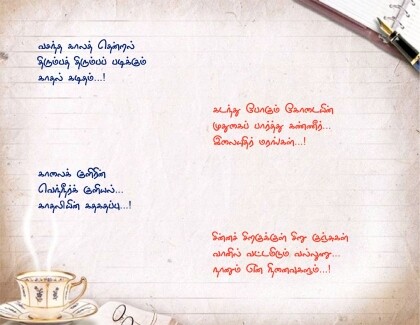 வசந்த காலத் தென்றல்
திரும்பத் திரும்பப் படிக்கும்
காதல் கடிதம்...!
கடந்து போகும் கோடையின்
முதுகைப் பார்த்து கண்ணீர்...
இலையுதிர் மரங்கள்...!
காலைக் குளிரின்
வெந்நீர்க் குளியல்...
காதலியின் கதகதப்பு...!
சின்னச் சிறகுக்குள் சிறு குஞ்சுகள்
வானில் வட்டமிடும் வல்லூறு...
நானும் என் நினைவுகளும்...!